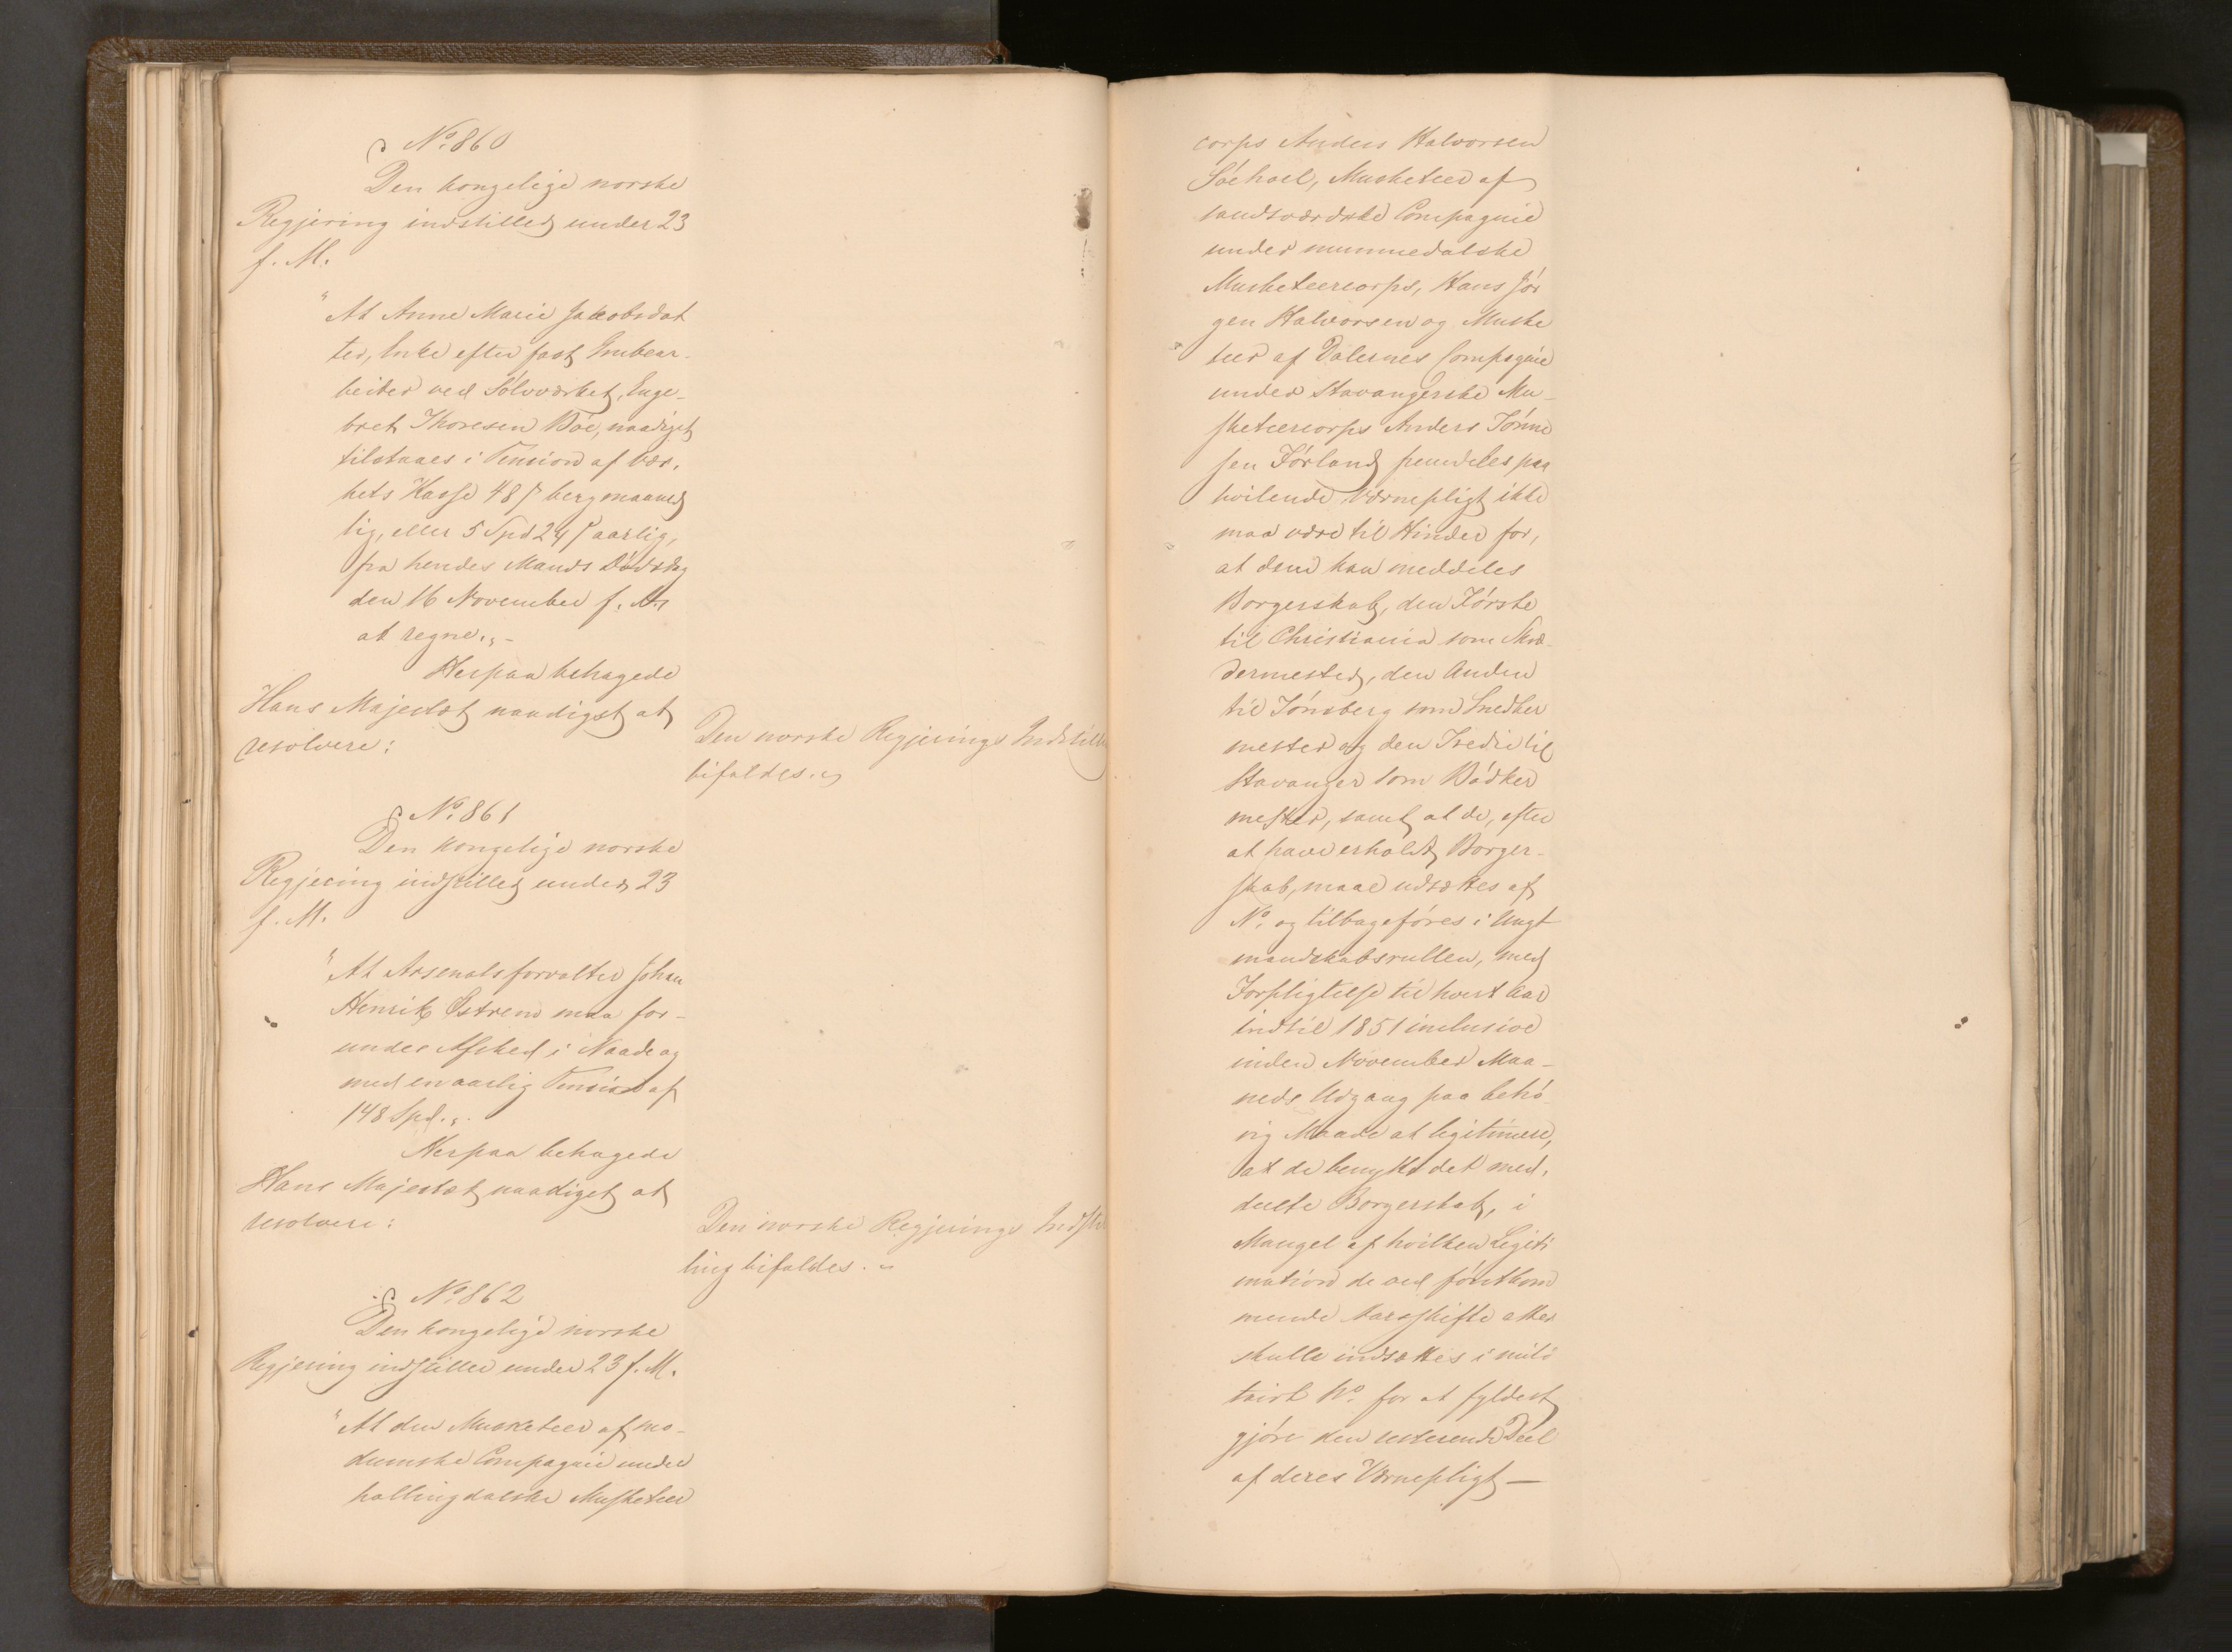 No. 860
Den kongelige norske
Regjering indstilled under 23
f. M.
"At Anne Marie Jacobsdat
ter, Enke efter fast Grubear-
beider ved Sölvværket, Enge-
bret Thoresen Böe, naadigst
tilstaaes i Pension af Vær-
kets Kasse 48 s bergmaaned
lig, eller 5 Spd 24 s aarlig,
fra hendes Mands Dödsdag
den 16 November f. A.
at regne."-
Herpaa behagede
Hans Majestæt naadigst at
resolvere:
Den norske Regjerings Indstilling
bifaldes."
No. 861
Den kongelige norske
Regjering indstilled under 23
f. M.
"At Arsenalsforvalter Johan
Henrik Østrem maa for-
undes Afsked i Naade og
med en aarlig Pension af
148 Spd."
Herpaa behagede
Hans Majestæt naadigst at
resolvere:
Den norske Regjerings Indstil
ling bifaldes."
No. 862
Den kongelige norske
Regjering indstiller under 23 f. M.
"At den Musketeer af mo-
dumske Compagnie under
hallingdalske Musketeer
corps Anders Halvorsen
Söehoel, Musketeer af
sandsværdske Compagnie
under nummedalske
Musketeercorps, Hans Jör
gen Halvorsen og Muske
teer af Dalernes Compagnie
under Stavangerske Mu-
sketeercorps Anders Tönne
sen Förland fremdeles paa
hvilende Værnepligt ikke
maa være til Hinder for,
at dem kan meddeles
Borgerskab, den Förste
til Christiania som Skræ-
dermester, den Anden
til Tönsberg som Snedker
mester og den Tredie til
Stavanger som Bödker
mester, samt at de, efter
at have erholdt Borger-
skab, maae udsættes af
No. og tilbageföres i Ungt
mandskabsrullen, med
Forpligtelse til hvert Aar
indtil 1851 inclusive
inden November Maa-
neds Udgang paa behö-
rig Maade at legitimere,
at de benytte det med-
deelte Borgerskab, i
Mangel af hvilken Legiti
mation de ved förstkom
mende Aarsskifte atter
skulle indsættes i mili
tairt No. for at fyldest
gjöre den resterende Deel
af deres Værnepligt —